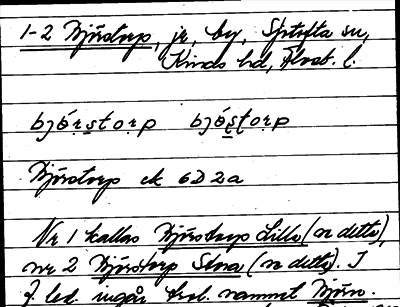 1-2 Bjürstorp, jr, by, Sjötofta sn,
Kinds hd, Älvsb. l.
bjǿrstorp bjǿştorp
Bjürstorp ek 6D 2a
Nr 1 kallas Bjürstorp Lilla (se detta),
nr 2 Bjürstorp Stora (se detta). I
f. led. ingår trol. namnet Bjürn.